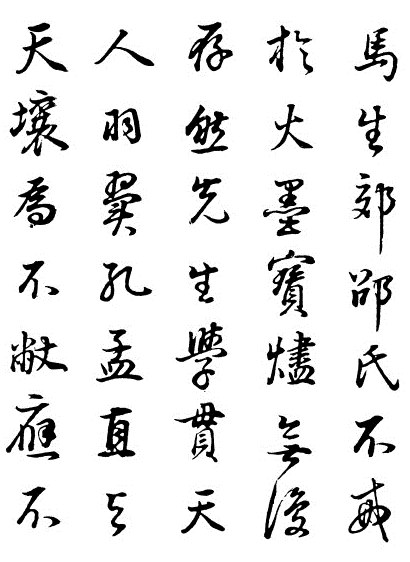 馬生郊邵氏不戒
於火墨寶燼無復
存然先生學貫天
人羽翼孔孟直與
天壤爲不敝應不